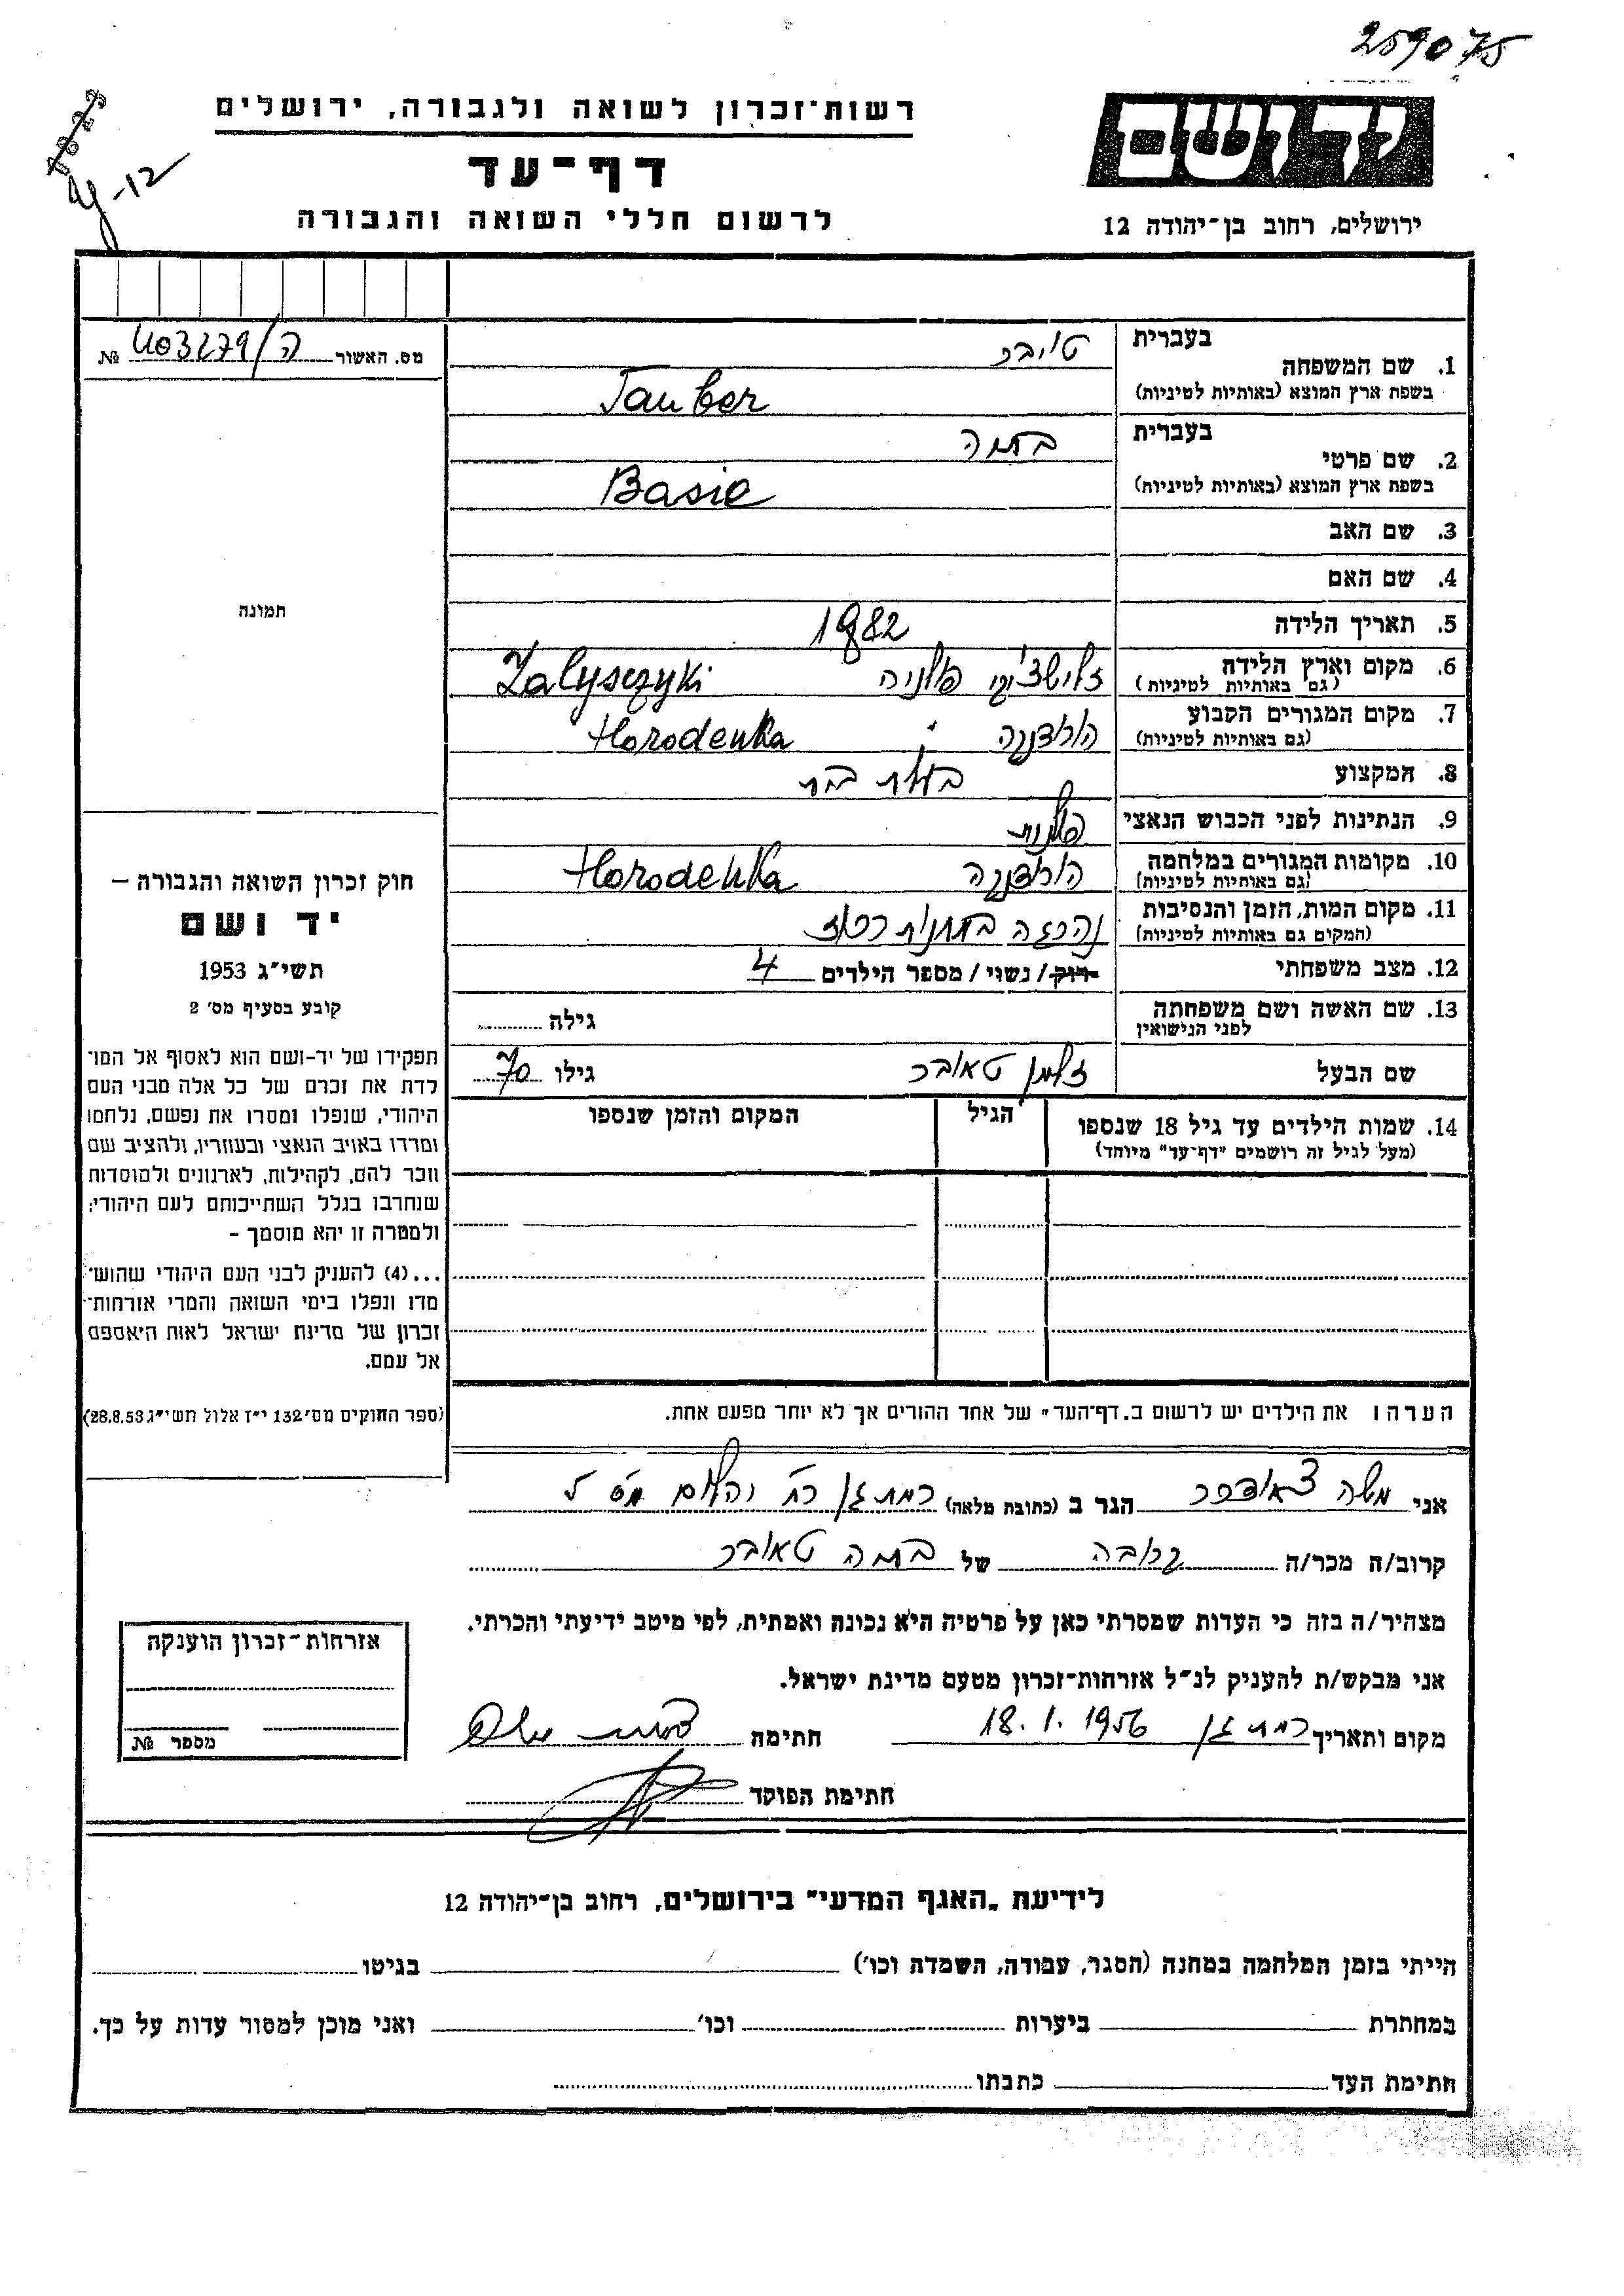 259075
רשות-זכרון לשואה ולגבורה, ירושלים
דף-עד
לרשום חללי השואה והגבורה
יד ושם
ירושלים, רחוב בן-יהודה 12
-12
מס. האשור ה/403279 №
תמונה
חוק זכרון השואה והגבורה —
יד ושם
תשי"ג 1953
קובע בסעיף מס' 2
תפקידו של יד-ושם הוא לאסוף אל המו־
לדת את זכרם של כל אלה מבני העם
היהודי, שנפלו ומסרו את נפשם, נלחמו
ומרדו באויב הנאצי ובעוזריו, ולהציב שם
וזכר להם, לקהילות, לארגונים ולמוסדות
שנחרבו בגלל השתייכותם לעם היהודי;
ולמטרה זו יהא מוסמך -
...(4) להעניק לבני העם היהודי שהוש־
מדו ונפלו בימי השואה והמרי אזרחות־
זכרון של מדינת ישראל לאות היאספם
אל עמם.
(ספר החוקים מס' 132 י"ז אלול תשי"ג 28.8.53)
בעברית
1. שם המשפחה טויבר
בשפת ארץ המוצא (באותיות לטיניות) Tauber
בעברית
2. שם פרטי בתיה
בשפת ארץ המוצא (באותיות לטיניות) Basie
3. שם האב
4. שם האם
5. תאריך הלידה 1882
6. מקום וארץ הלידה זלישצ'יקי פולניה Zalysczyki
(גם באותיות לטיניות)
7. מקום המגורים הקבוע הורודנקה Horodenka
(גם באותיות לטיניות)
8. המקצוע בעלת בית
9. הנתינות לפני הכבוש הנאצי פולנית
10. מקומות המגורים במלחמה הורודנקה Horodenka
(גם באותיות לטיניות)
11. מקום המות, הזמן והנסיבות נהרגה
(המקום גם באותיות לטיניות)
12. מצב משפחתי רוק/ נשוי / מספר הילדים 4
13. שם האשה ושם משפחתה גילה
לפני הנישואין
שם הבעל זלמן טאובר גילו 70
14. שמות הילדים עד גיל 18 שנספו הגיל המקום והזמן שנספו
(מעל לגיל זה רושמים "דף-עד" מיוחד)
הערה ו את הילדים יש לרשום ב.דף-העד" של אחד ההורים אך לא יותר מפעם אחת.
אני משה הגר ב (כתובת מלאה) רמת גן רח'
קרוב/ה מכר/ה קרובה של בתיה טאובר
מצהיר/ה בזה כי העדות שמסרתי כאן על פרטיה היא נכונה ואמתית, לפי מיטב ידיעתי והכרתי.
אני מבקש/ת להעניק לנ"ל אזרחות-זכרון מטעם מדינת ישראל.
מקום ותאריך רמת גן 18.1.1956 חתימה
חתימת הפוקד
אזרחות-זכרון הוענקה
מספר №
לידיעת „האגף המדעי" בירושלים, רחוב בן-יהודה 12
הייתי בזמן המלחמה במחנה (הסגר, עבודה, השמדה וכו') בגיטו
במחתרת ביערות וכו' ואני מוכן למסור עדות על כך.
חתימת העד כתבתו